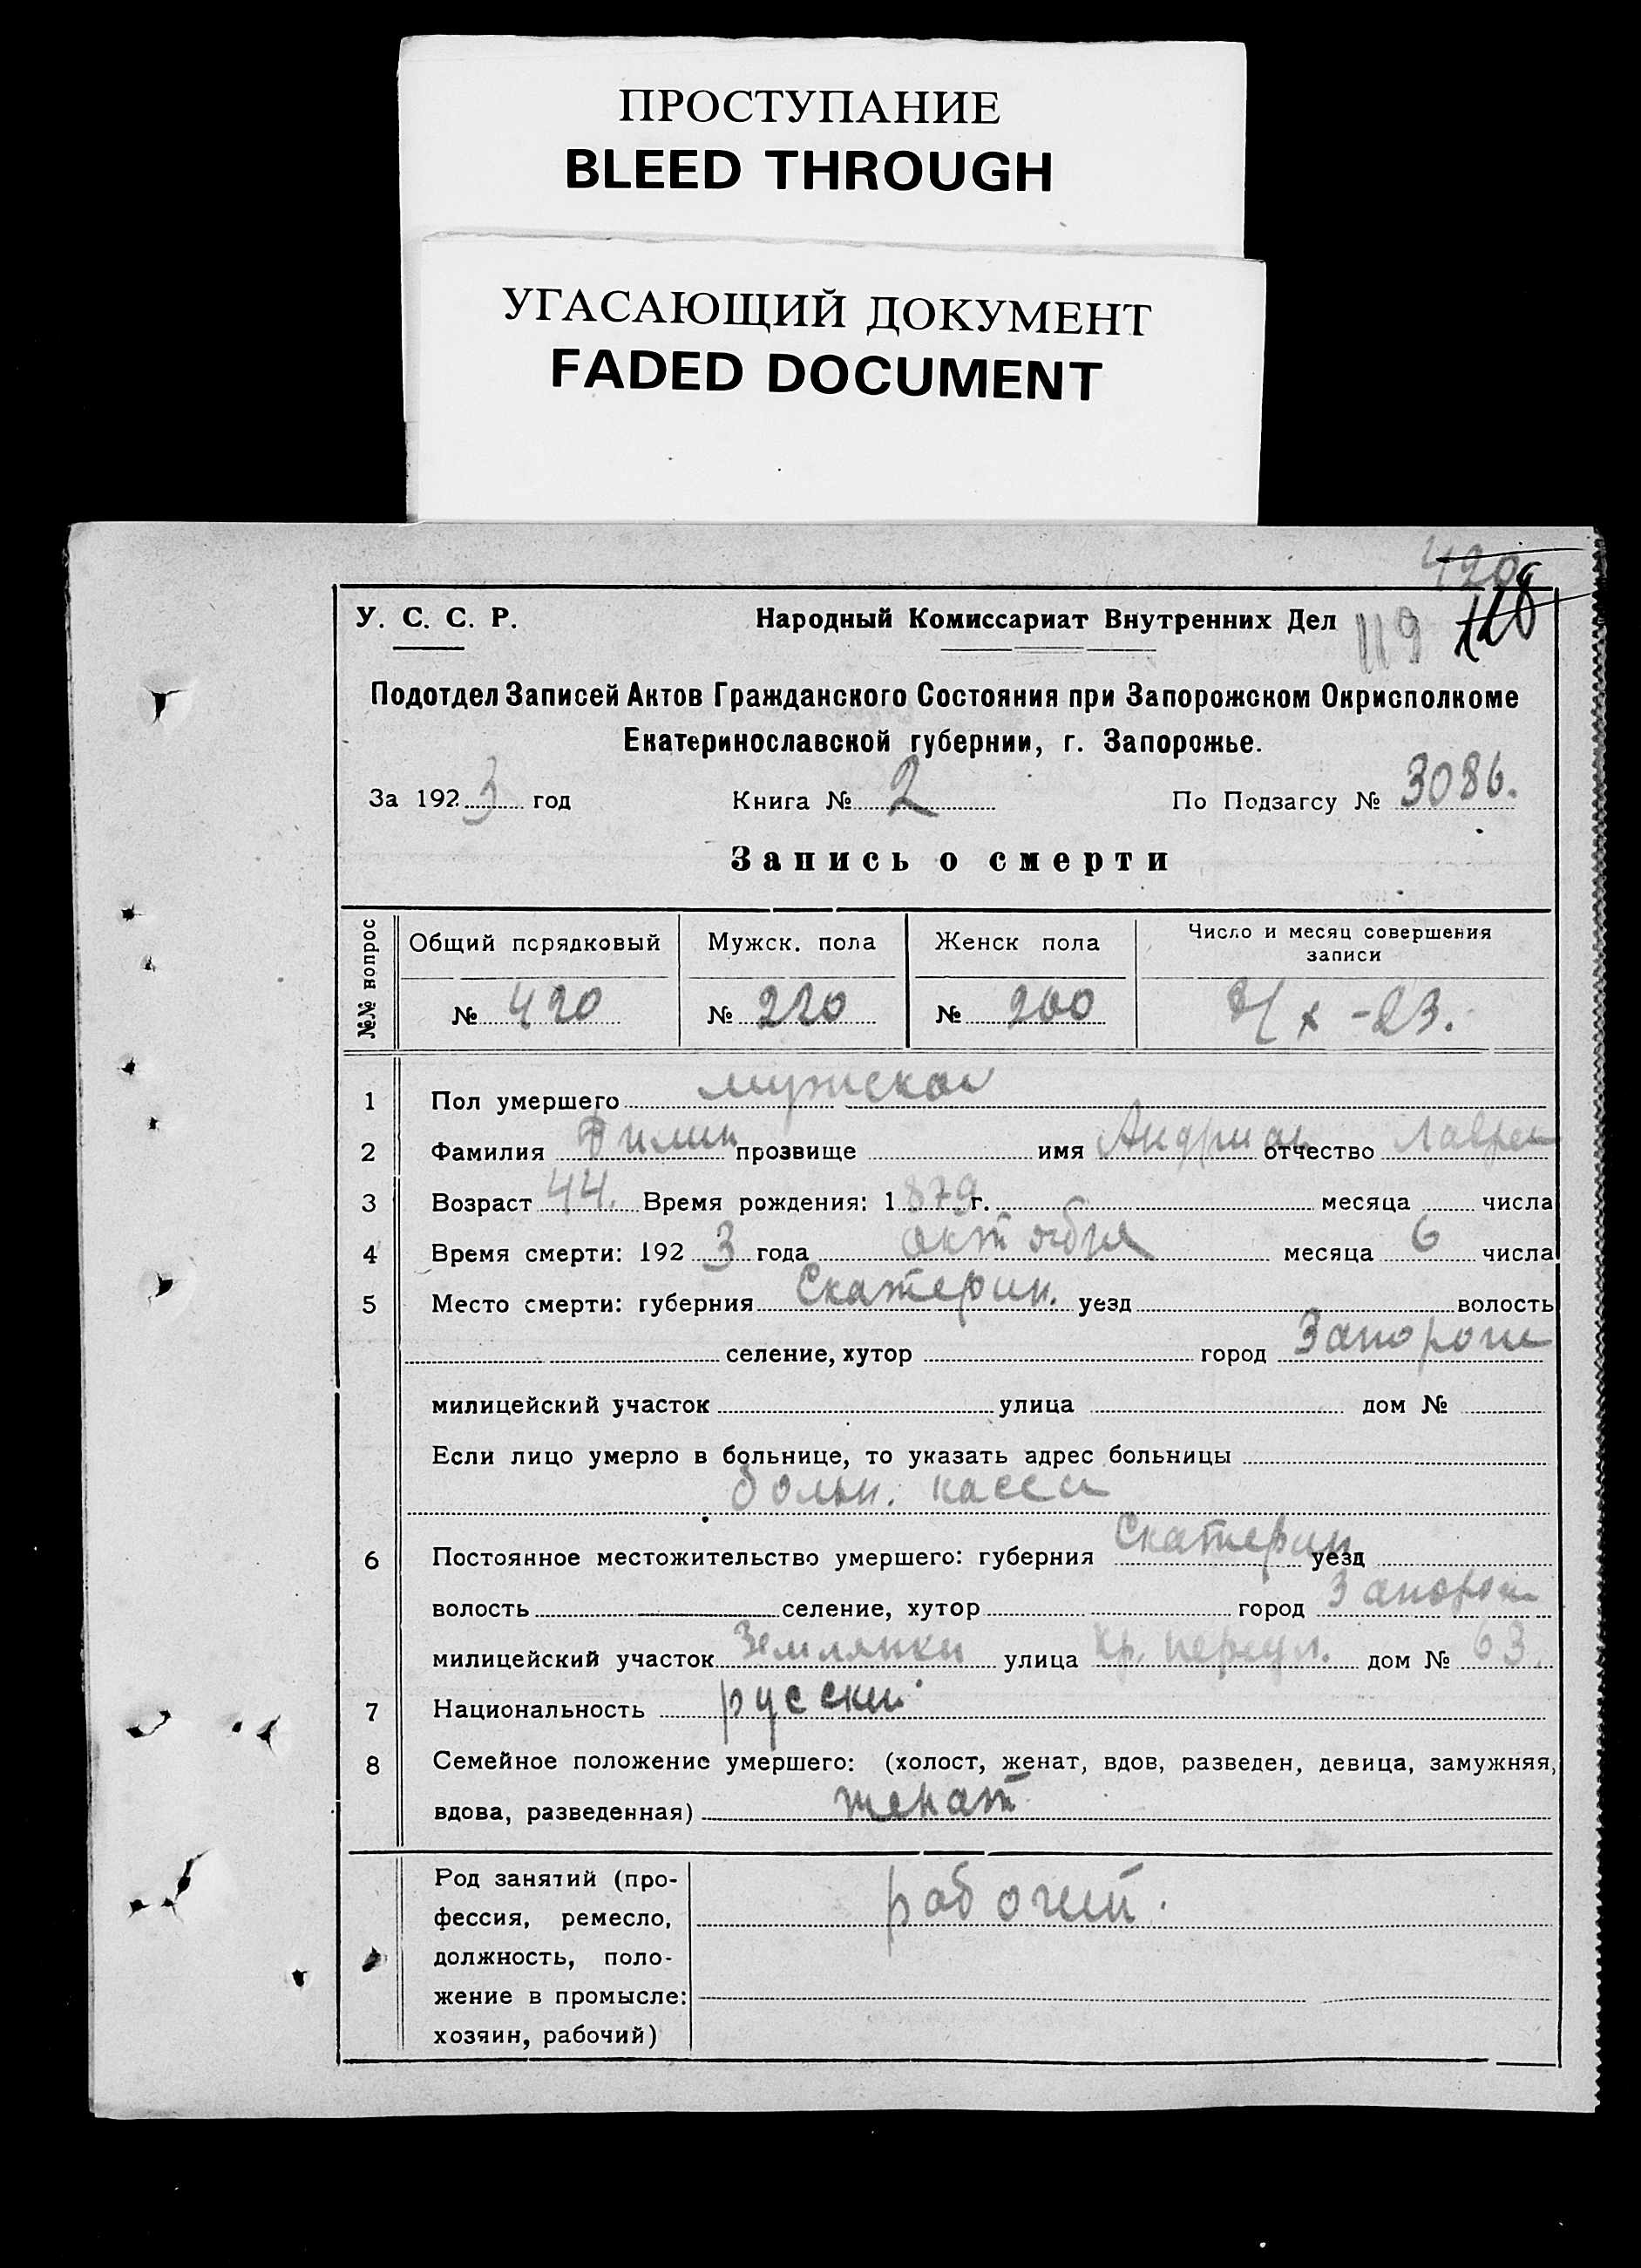 ПРОСТУПАНИЕ
BLEED THROUGH
УГАСАЮЩИЙ ДОКУМЕНТ
FADED DOCUMENT
420
У. С. С. Р. Народный Комиссариат Внутренних Дел 119
Подотдел Записей Актов Гражданского Состояния при Запорожском Окрисполкоме
Екатеринославской губернии, г. Запорожье.
За 1923 год Книга № 2 По Подзагсу № 3086.
Запись о смерти
№№ вопрос
Общий порядковый Мужск. пола Женск пола Число и месяц совершения записи
№ 420 № 220 № 200 8/X -23.
1 Пол умершего мужской
2 Фамилия прозвище имя Андриан отчество Лаврен
3 Возраст 44. Время рождения: 1879 г. месяца числа
4 Время смерти: 1923 года октября месяца 6 числа
5 Место смерти: губерния Екатерин. уезд волость
селение, хутор город Запорож
милицейский участок улица дом №
Если лицо умерло в больнице, то указать адрес больницы
больн. касси
6 Постоянное местожительство умершего: губерния Екатерин уезд
волость селение, хутор город Запорож
милицейский участок Землянки улица Кр. переул. дом № 63.
7 Национальность русский
8 Семейное положение умершего: (холост, женат, вдов, разведен, девица, замужняя,
вдова, разведенная) женат
Род занятий (про-
фессия, ремесло, рабочий.
должность, поло-
жение в промысле:
хозяин, рабочий)